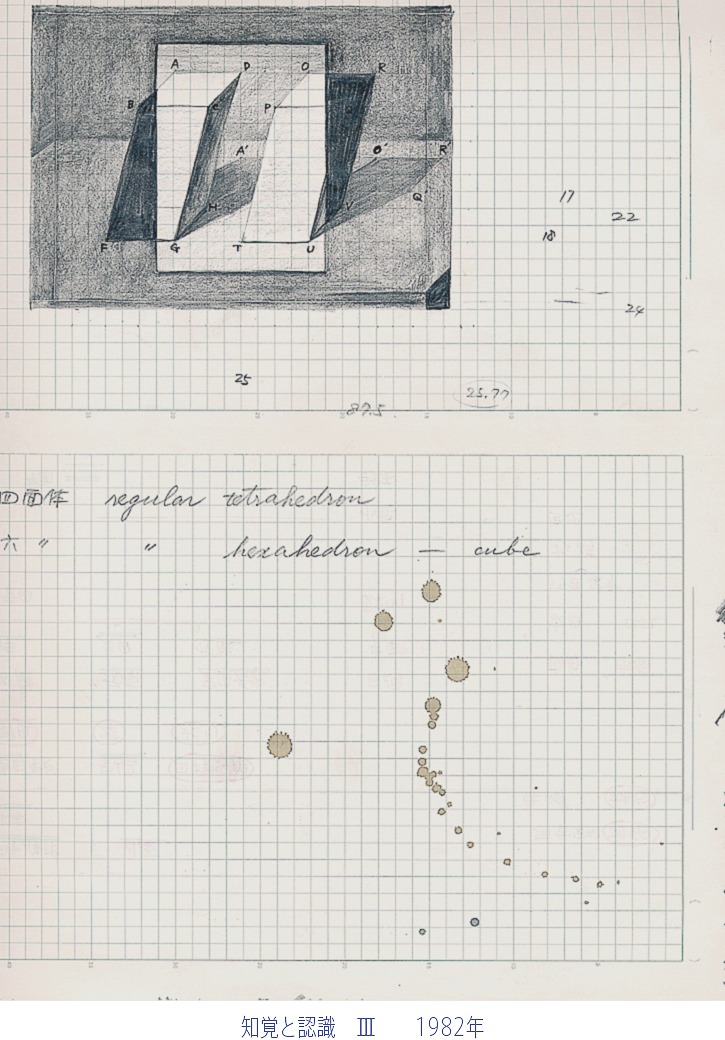 A D O R
B C P
A' O' R'
H V Q'
F G T U
17
22
18
24
25
25.77
87.5
四面体 regular tetrahedron
六〃 〃 hexahedron — cube
知覚と認識 Ⅲ 1982年